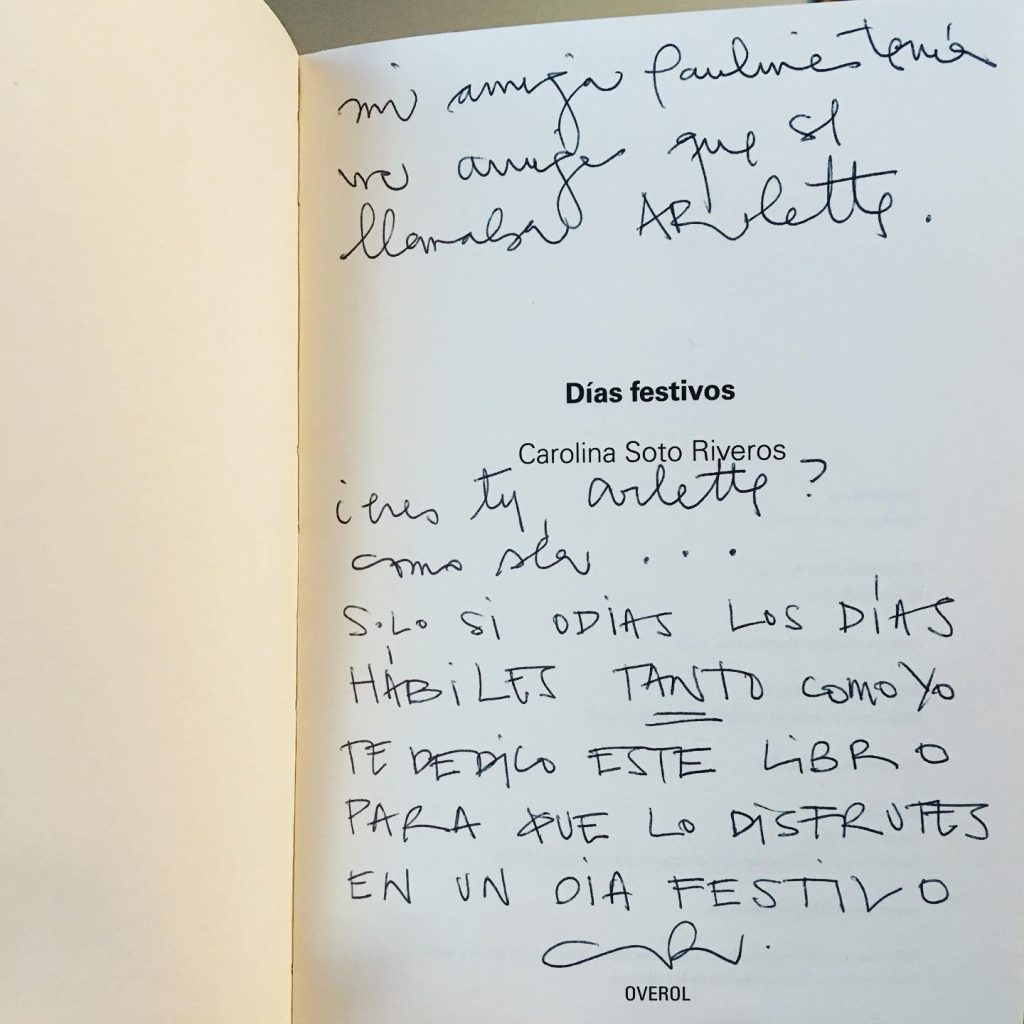 mi amiga Paulines tenía
una amiga que se
llamaba ARlette.
Días festivos
Carolina Soto Riveros
¿eres tú, arlette?
como sea ...
SOLO SI ODIAS LOS DÍAS
HÁBILES TANTO COMO YO
TE DEDICO ESTE LIBRO
PARA QUE LO DISFRUTES
EN UN DIA FESTIVO
OVEROL